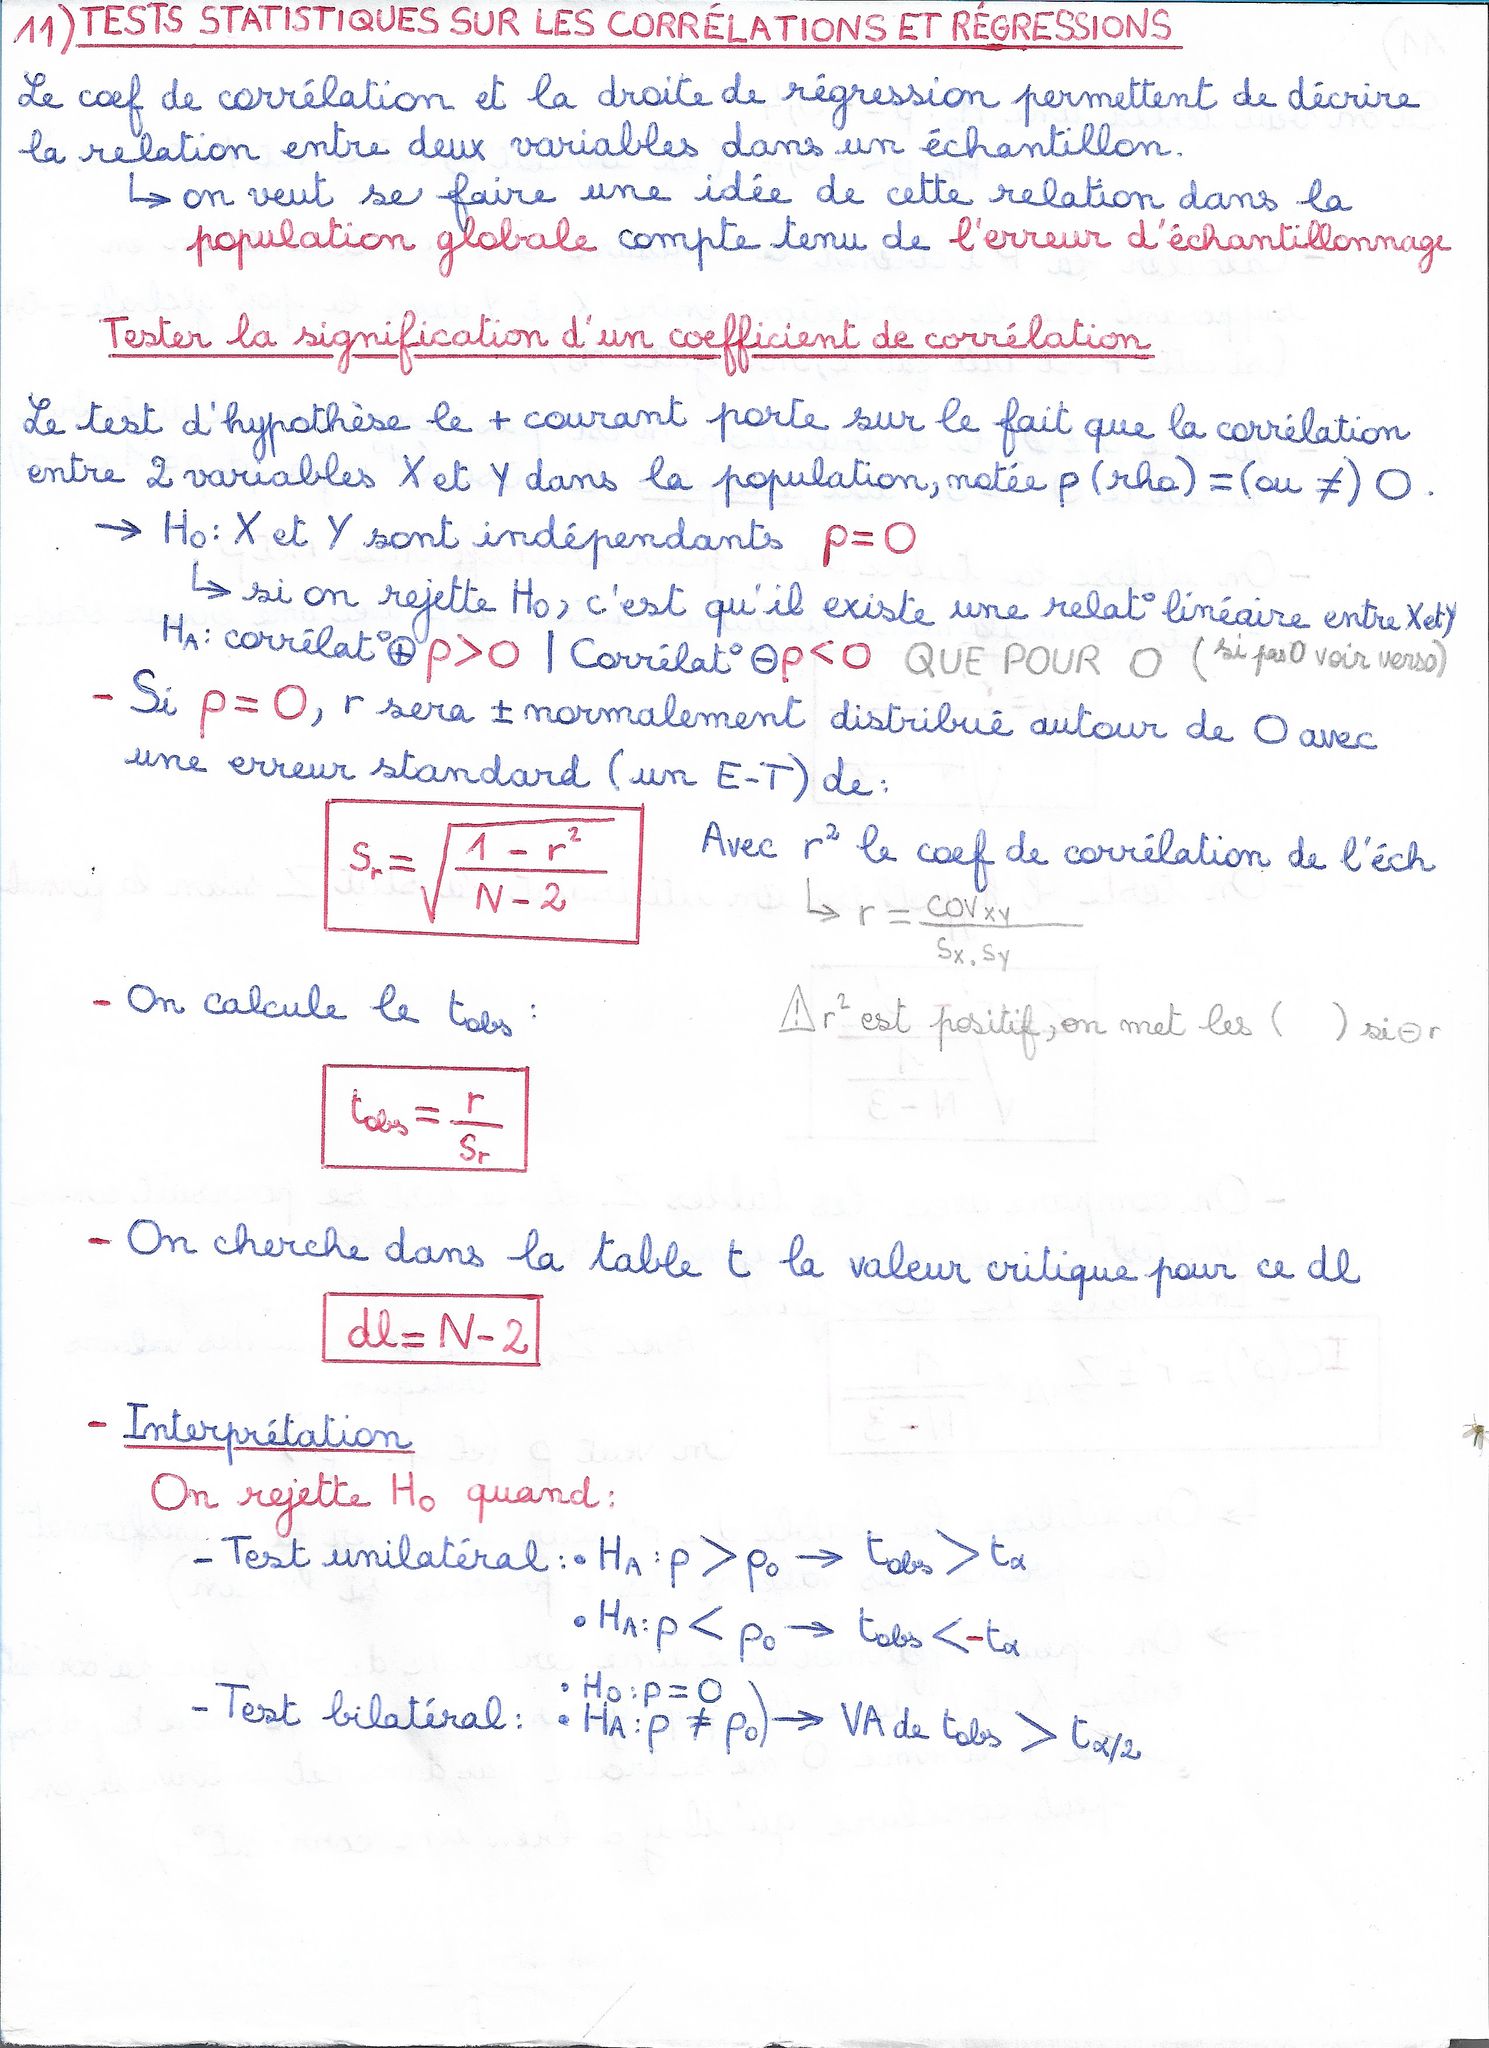 11) TESTS STATISTIQUES SUR LES CORRÉLATIONS ET RÉGRESSIONS
Le coef de corrélation et la droite de régression permettent de décrire
la relation entre deux variables dans un échantillon.
↳ on veut se faire une idée de cette relation dans la
population globale compte tenu de l'erreur d'échantillonnage
Tester la signification d'un coefficient de corrélation
Le test d'hypothèse le + courant porte sur le fait que la corrélation
entre 2 variables X et Y dans la population, notée ρ (rho) = (ou ≠) 0.
→ H0 : X et Y sont indépendants ρ = 0
↳ si on rejette H0, c'est qu'il existe une relat° linéaire entre X et Y
HA : corrélat° ⊕ ρ > 0 | Corrélat° ⊖ ρ < 0 QUE POUR 0 (si pas 0 voir verso)
- Si ρ = 0, r sera ± normalement distribué autour de 0 avec
une erreur standard (un E-T) de :
sr = √((1 - r²)/(N - 2)) Avec r² le coef de corrélation de l'éch
↳ r = covxy/(sx . sy)
- On calcule le tobs :
⚠ r² est positif, on met les ( ) si ⊖ r
tobs = r/sr
- On cherche dans la table t la valeur critique pour ce dl
dl = N - 2
- Interprétation
On rejette H0 quand :
- Test unilatéral : • HA : ρ > ρ0 → tobs > tα
• HA : ρ < ρ0 → tobs < -tα
• H0 : ρ = 0
- Test bilatéral : • HA : ρ ≠ ρ0) → VA de tobs > tα/2